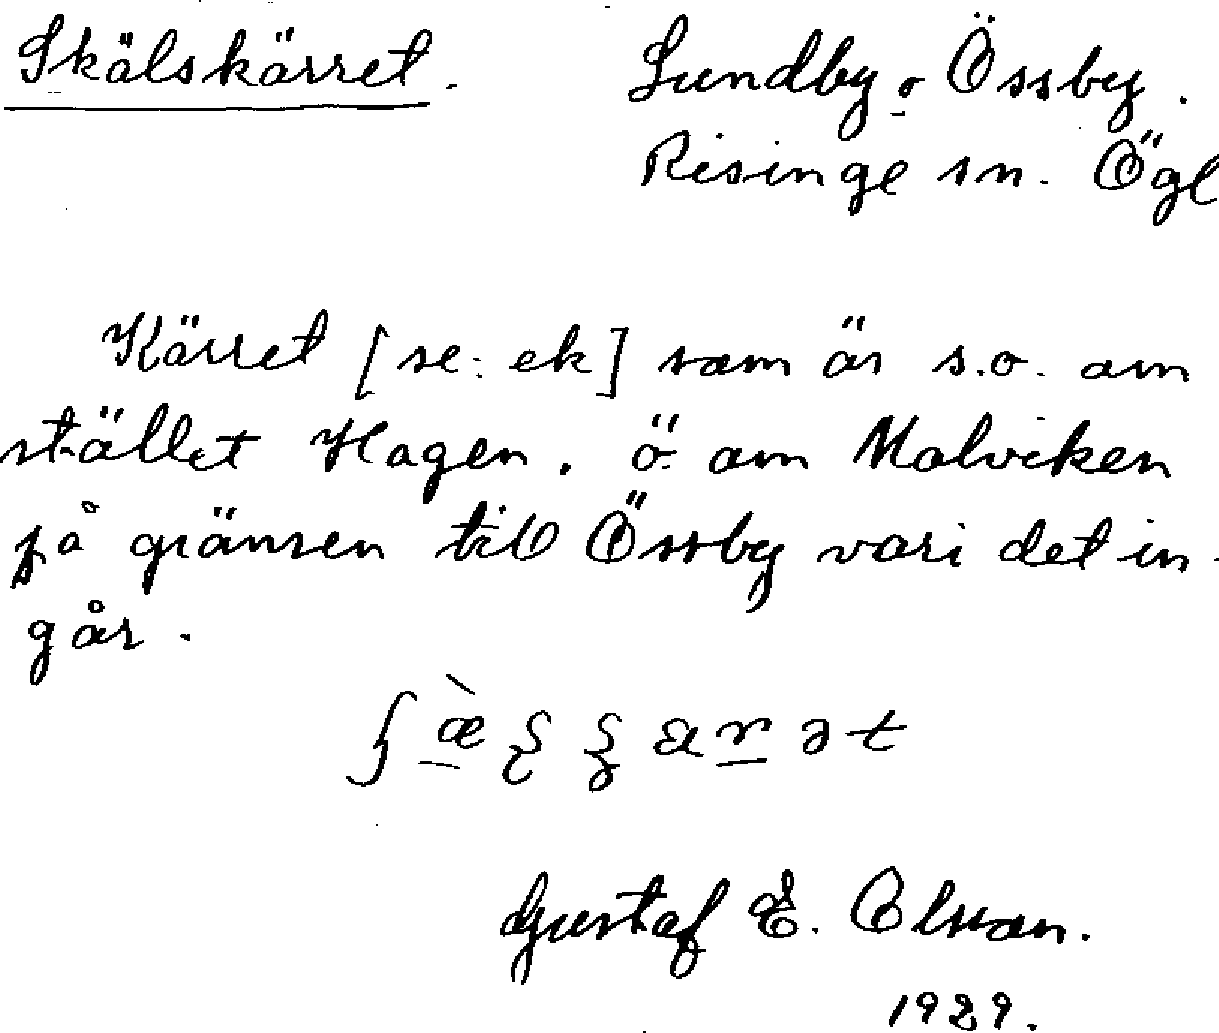 Skälskärret. Lundby o Össby.
Risinge sn. Ögl
Kärret [se: ek] som är s.o. om
stället Hagen, ö. om Malviken
på gränsen till Össby vari det in-
går.
Gustaf E. Olsson.
1929.